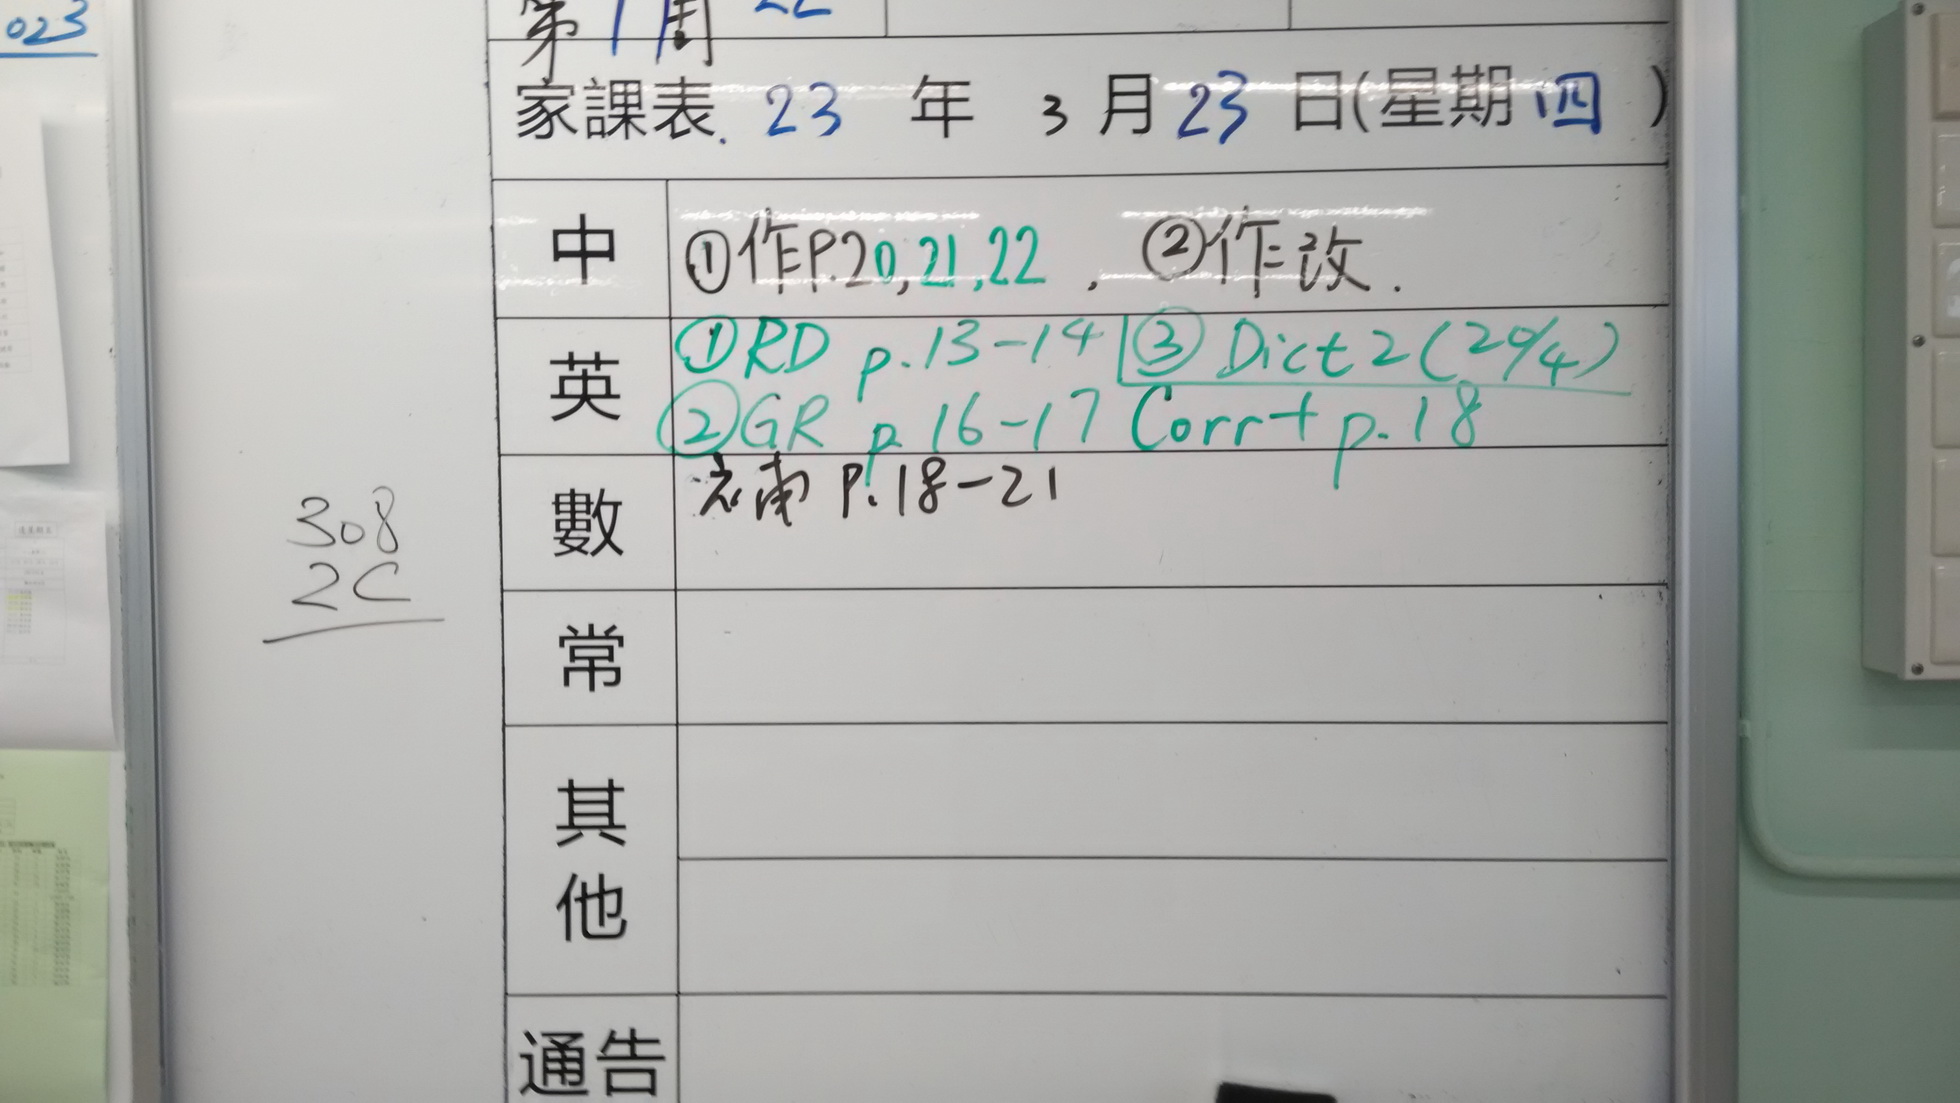 023
第1周
家課表. 23 年 3 月 23 日(星期四)
中
①作P.20,21,22. ②作改.
英
①RD p.13-14 ③ Dict 2 (29/4)
②GR p.16-17 Corr+ p.18
數
P.18-21
308
2C
常
其他
通告